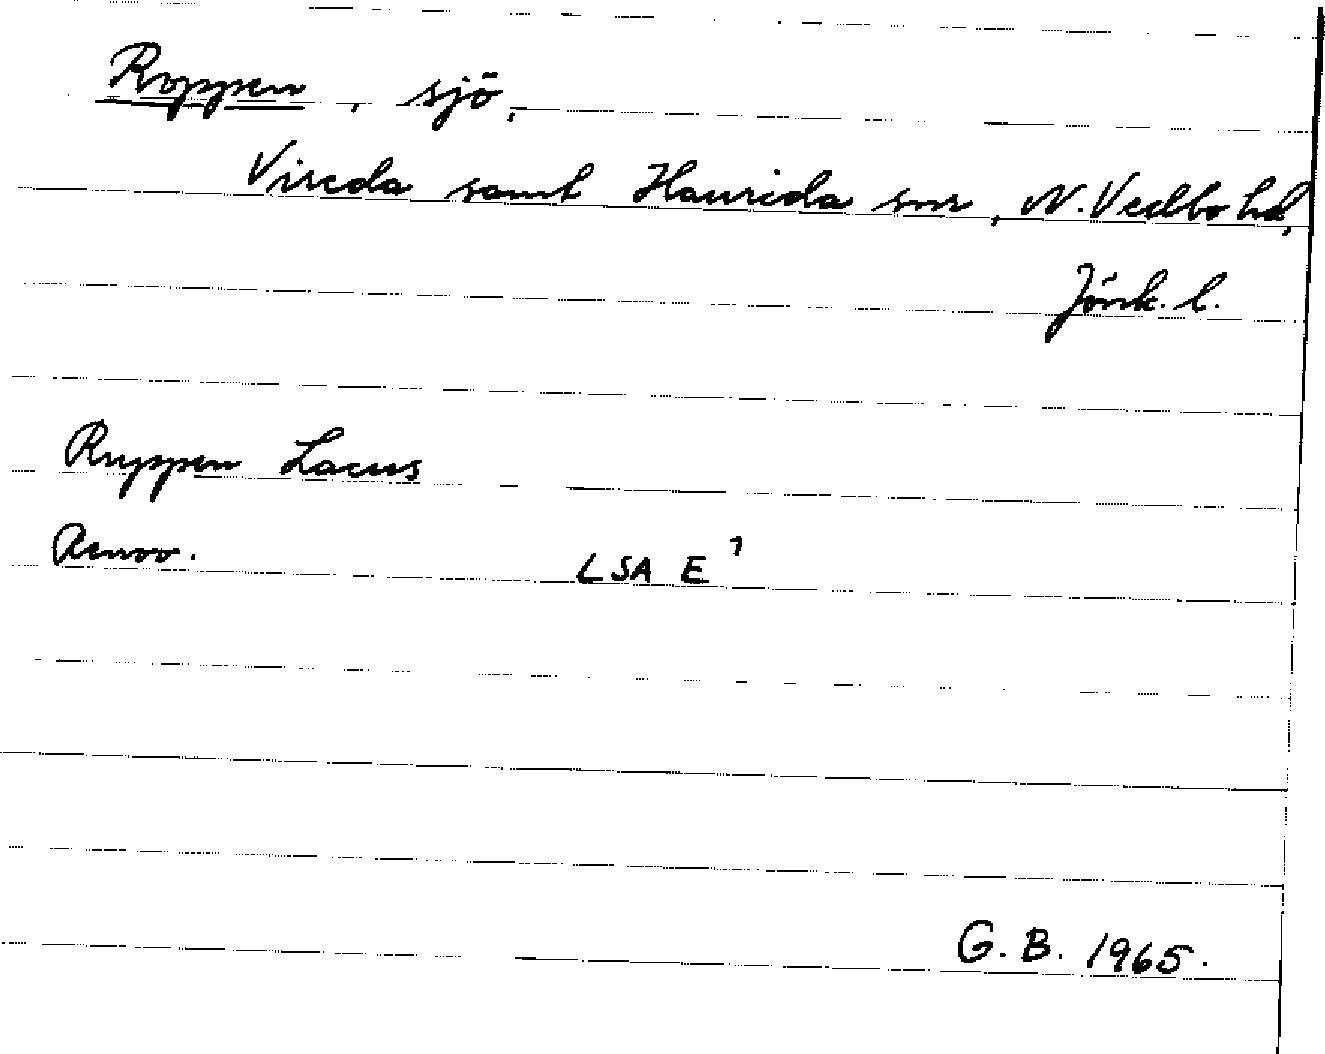 Roppen, sjö,
Vireda samt Haurida snr, N. Vedbo hd,
Jönk. l.
Ruppen Lacus
Renov. LSA E7
G. B. 1965.